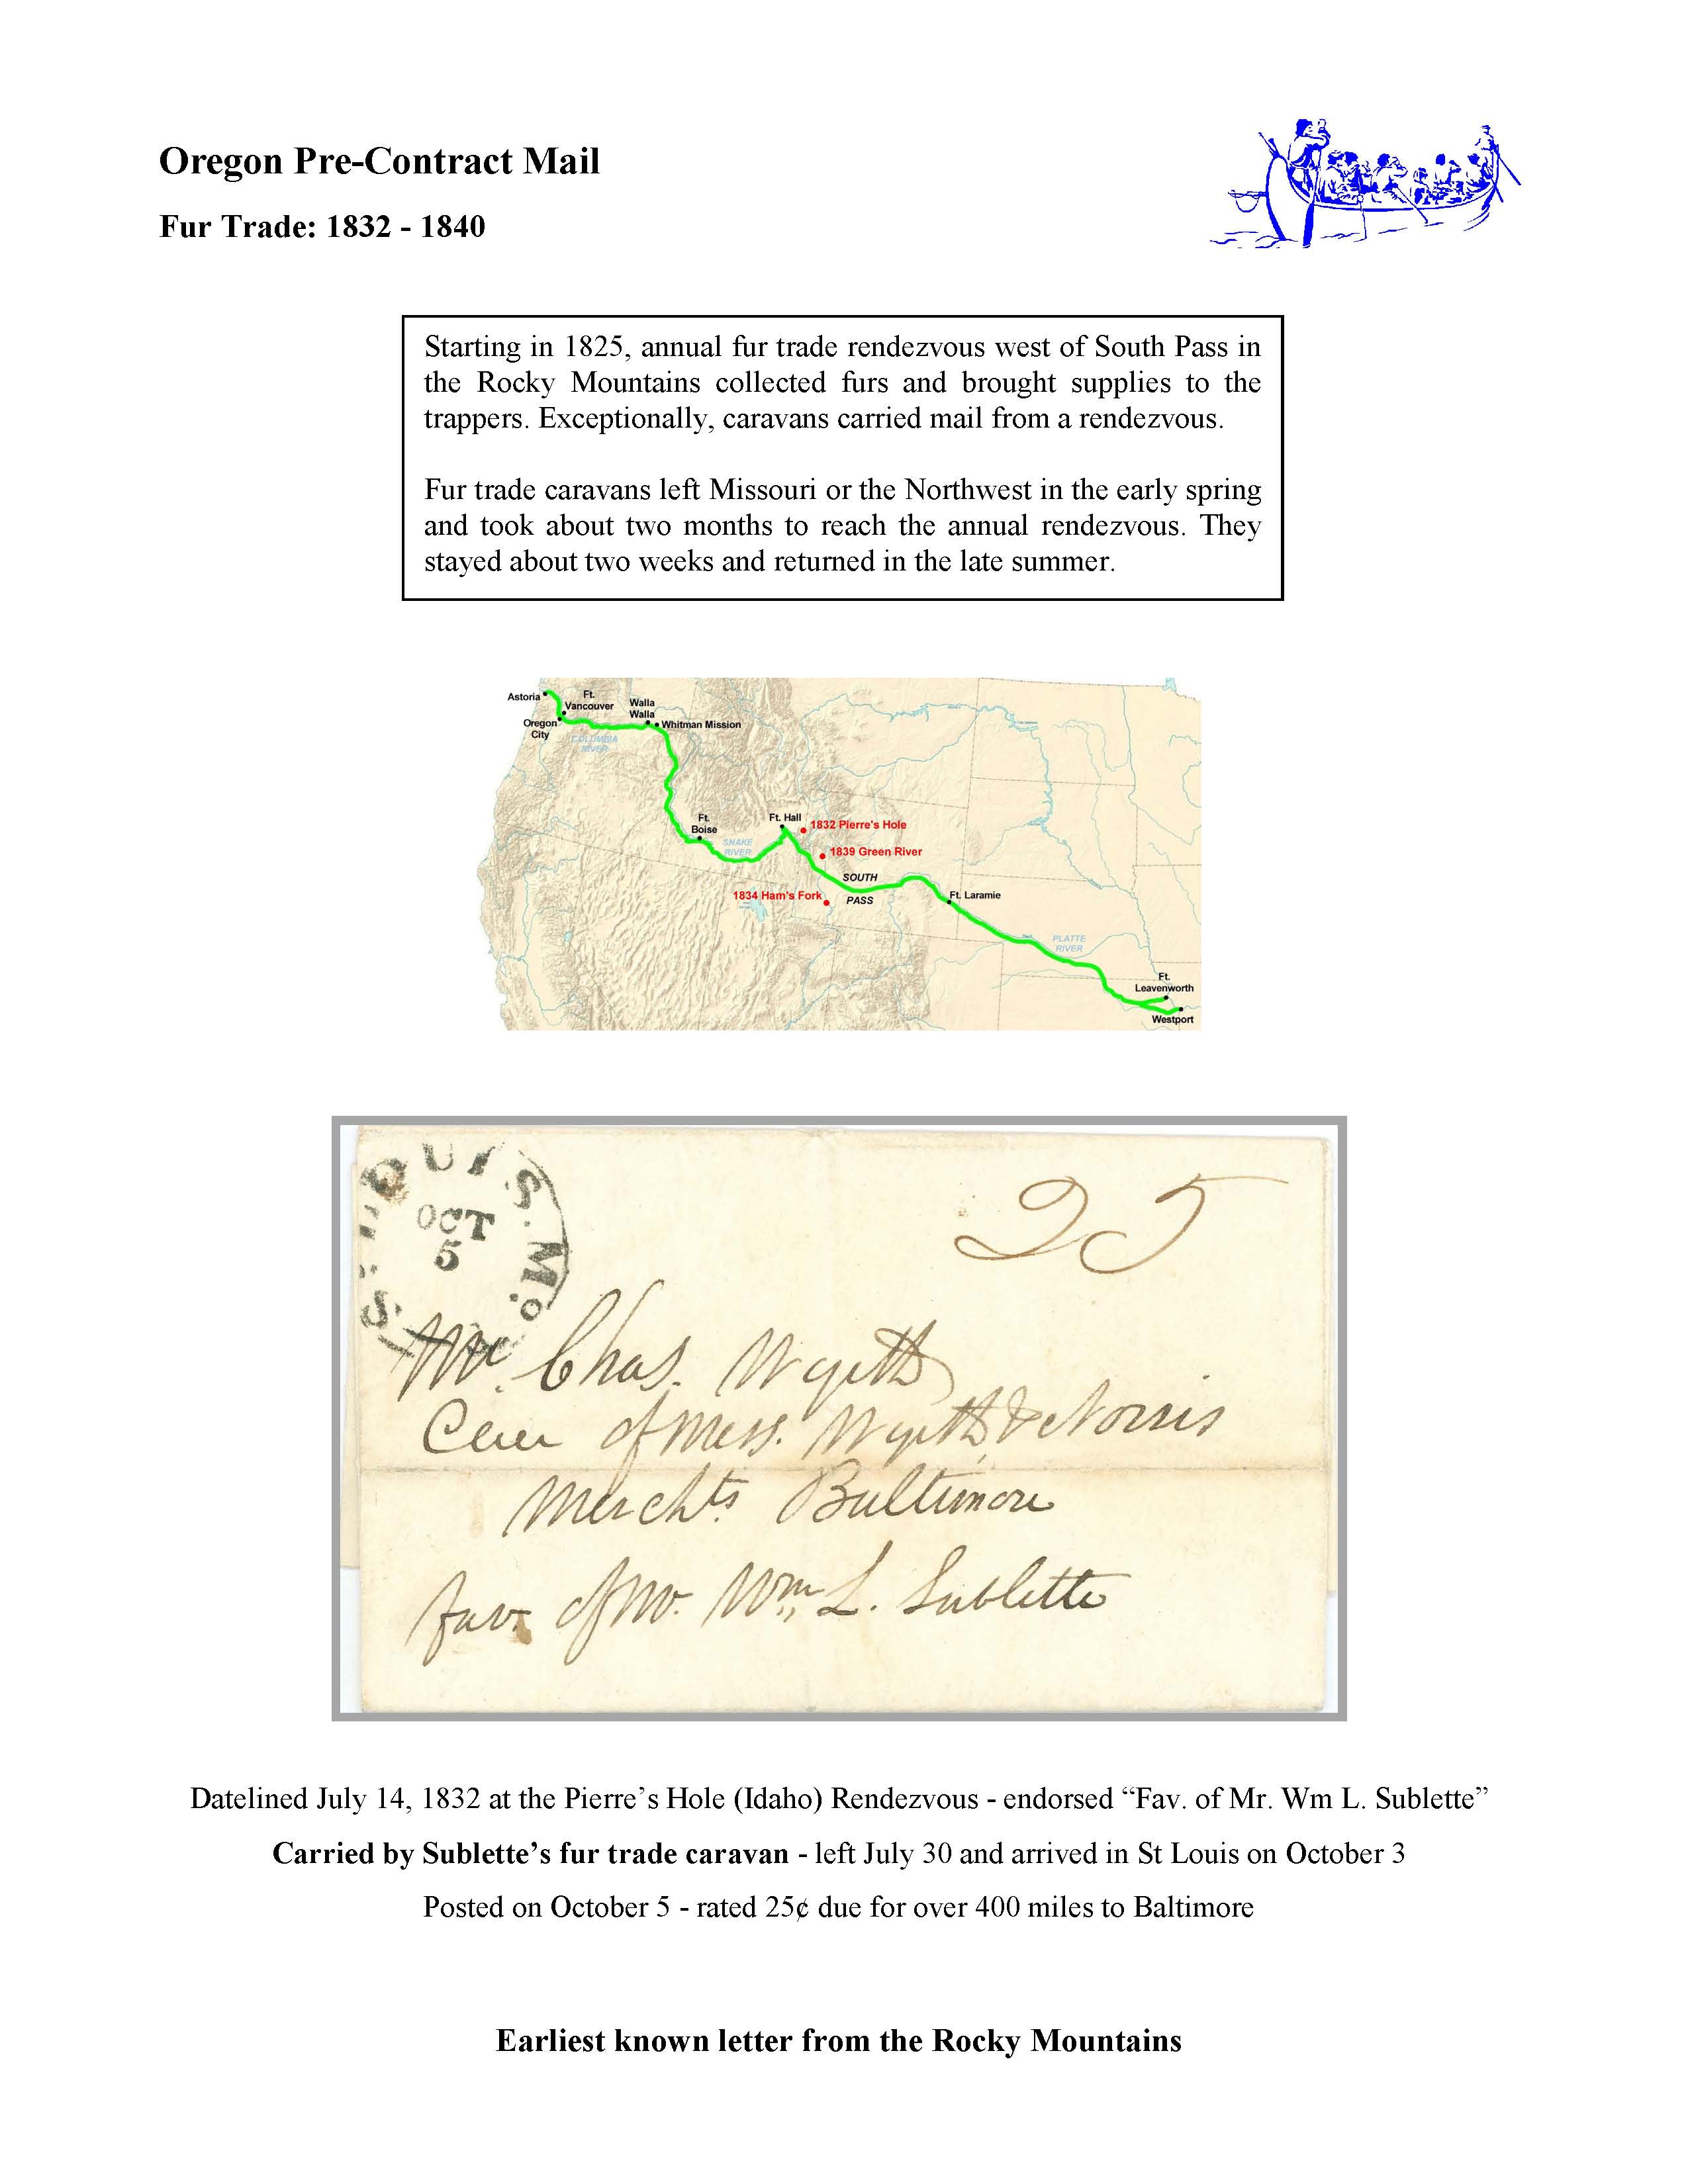 Oregon Pre-Contract Mail
Fur Trade: 1832 - 1840
Starting in 1825, annual fur trade rendezvous west of South Pass in
the Rocky Mountains collected furs and brought supplies to the
trappers. Exceptionally, caravans carried mail from a rendezvous.
Fur trade caravans left Missouri or the Northwest in the early spring
and took about two months to reach the annual rendezvous. They
stayed about two weeks and returned in the late summer.
Astoria
Ft.
Vancouver
Oregon
City
COLUMBIA
RIVER
Walla
Walla
Whitman Mission
Ft.
Boise
SNAKE
RIVER
Ft. Hall
1832 Pierre's Hole
1839 Green River
1834 Ham's Fork
SOUTH
PASS
Ft. Laramie
PLATTE
RIVER
Ft.
Leavenworth
Westport
ST LOUIS. Mo.
OCT
5
25
Mr. Chas. Wyeth
Care of Mess. Wyeth & Norris
Merchts. Baltimore
fav. of Mr. Wm L. Sublette
Datelined July 14, 1832 at the Pierre’s Hole (Idaho) Rendezvous - endorsed “Fav. of Mr. Wm L. Sublette”
Carried by Sublette’s fur trade caravan - left July 30 and arrived in St Louis on October 3
Posted on October 5 - rated 25¢ due for over 400 miles to Baltimore
Earliest known letter from the Rocky Mountains